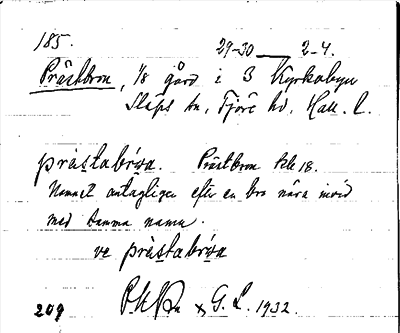 185.
29-30 — 2-4.
Prästbron, 1/8 gård i 3 Kyrkobyn
Släps sn, Fjäre hd, Hall. l.
prästabróa. Prästbron
Namnet antagligen efter en bro nära invid
med samma namn.
vε prästabróa
G. L. 1932.
209